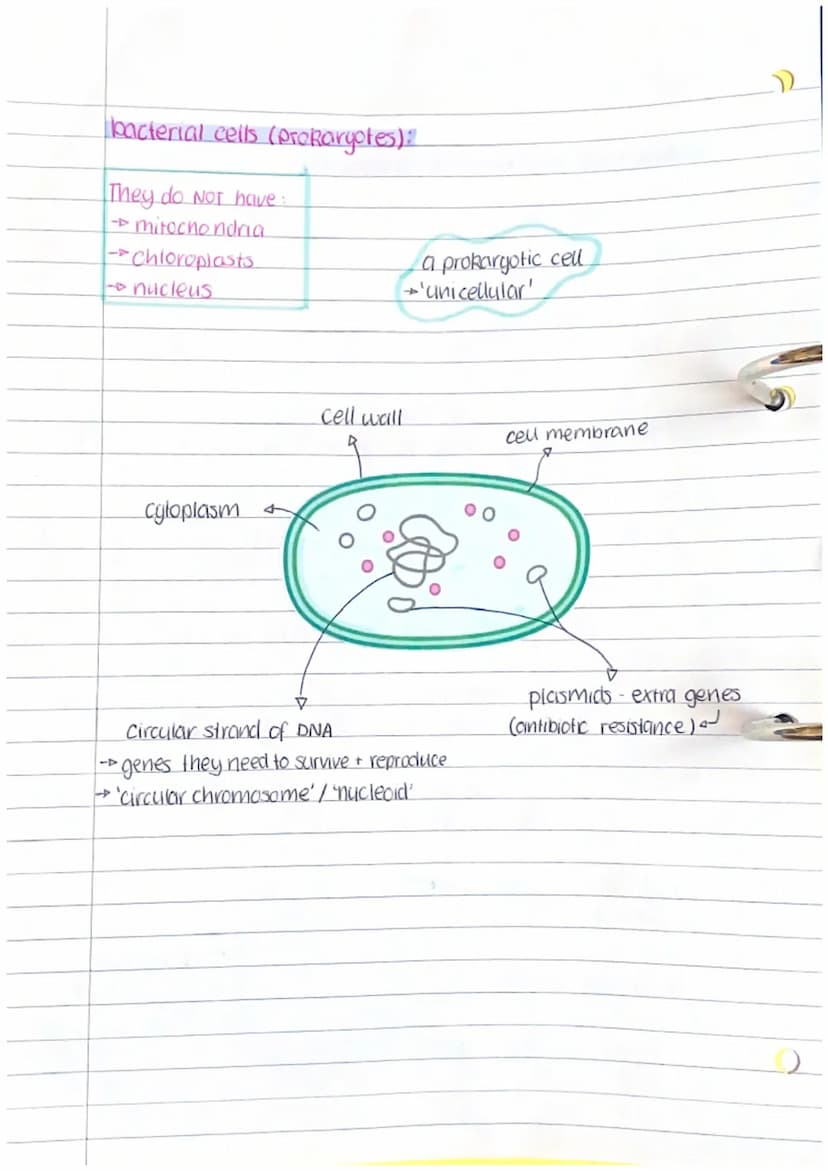 bacterial cells (prokaryotes):
They do NOT have:
→ mitochondria
→ chloroplasts
→ nucleus
a prokaryotic cell
→ 'unicellular'
cell wall
cell membrane
cytoplasm
plasmids - extra genes
(antibiotic resistance) ↲
circular strand of DNA
→ genes they need to survive + reproduce
→ 'circular chromosome' / 'nucleoid'